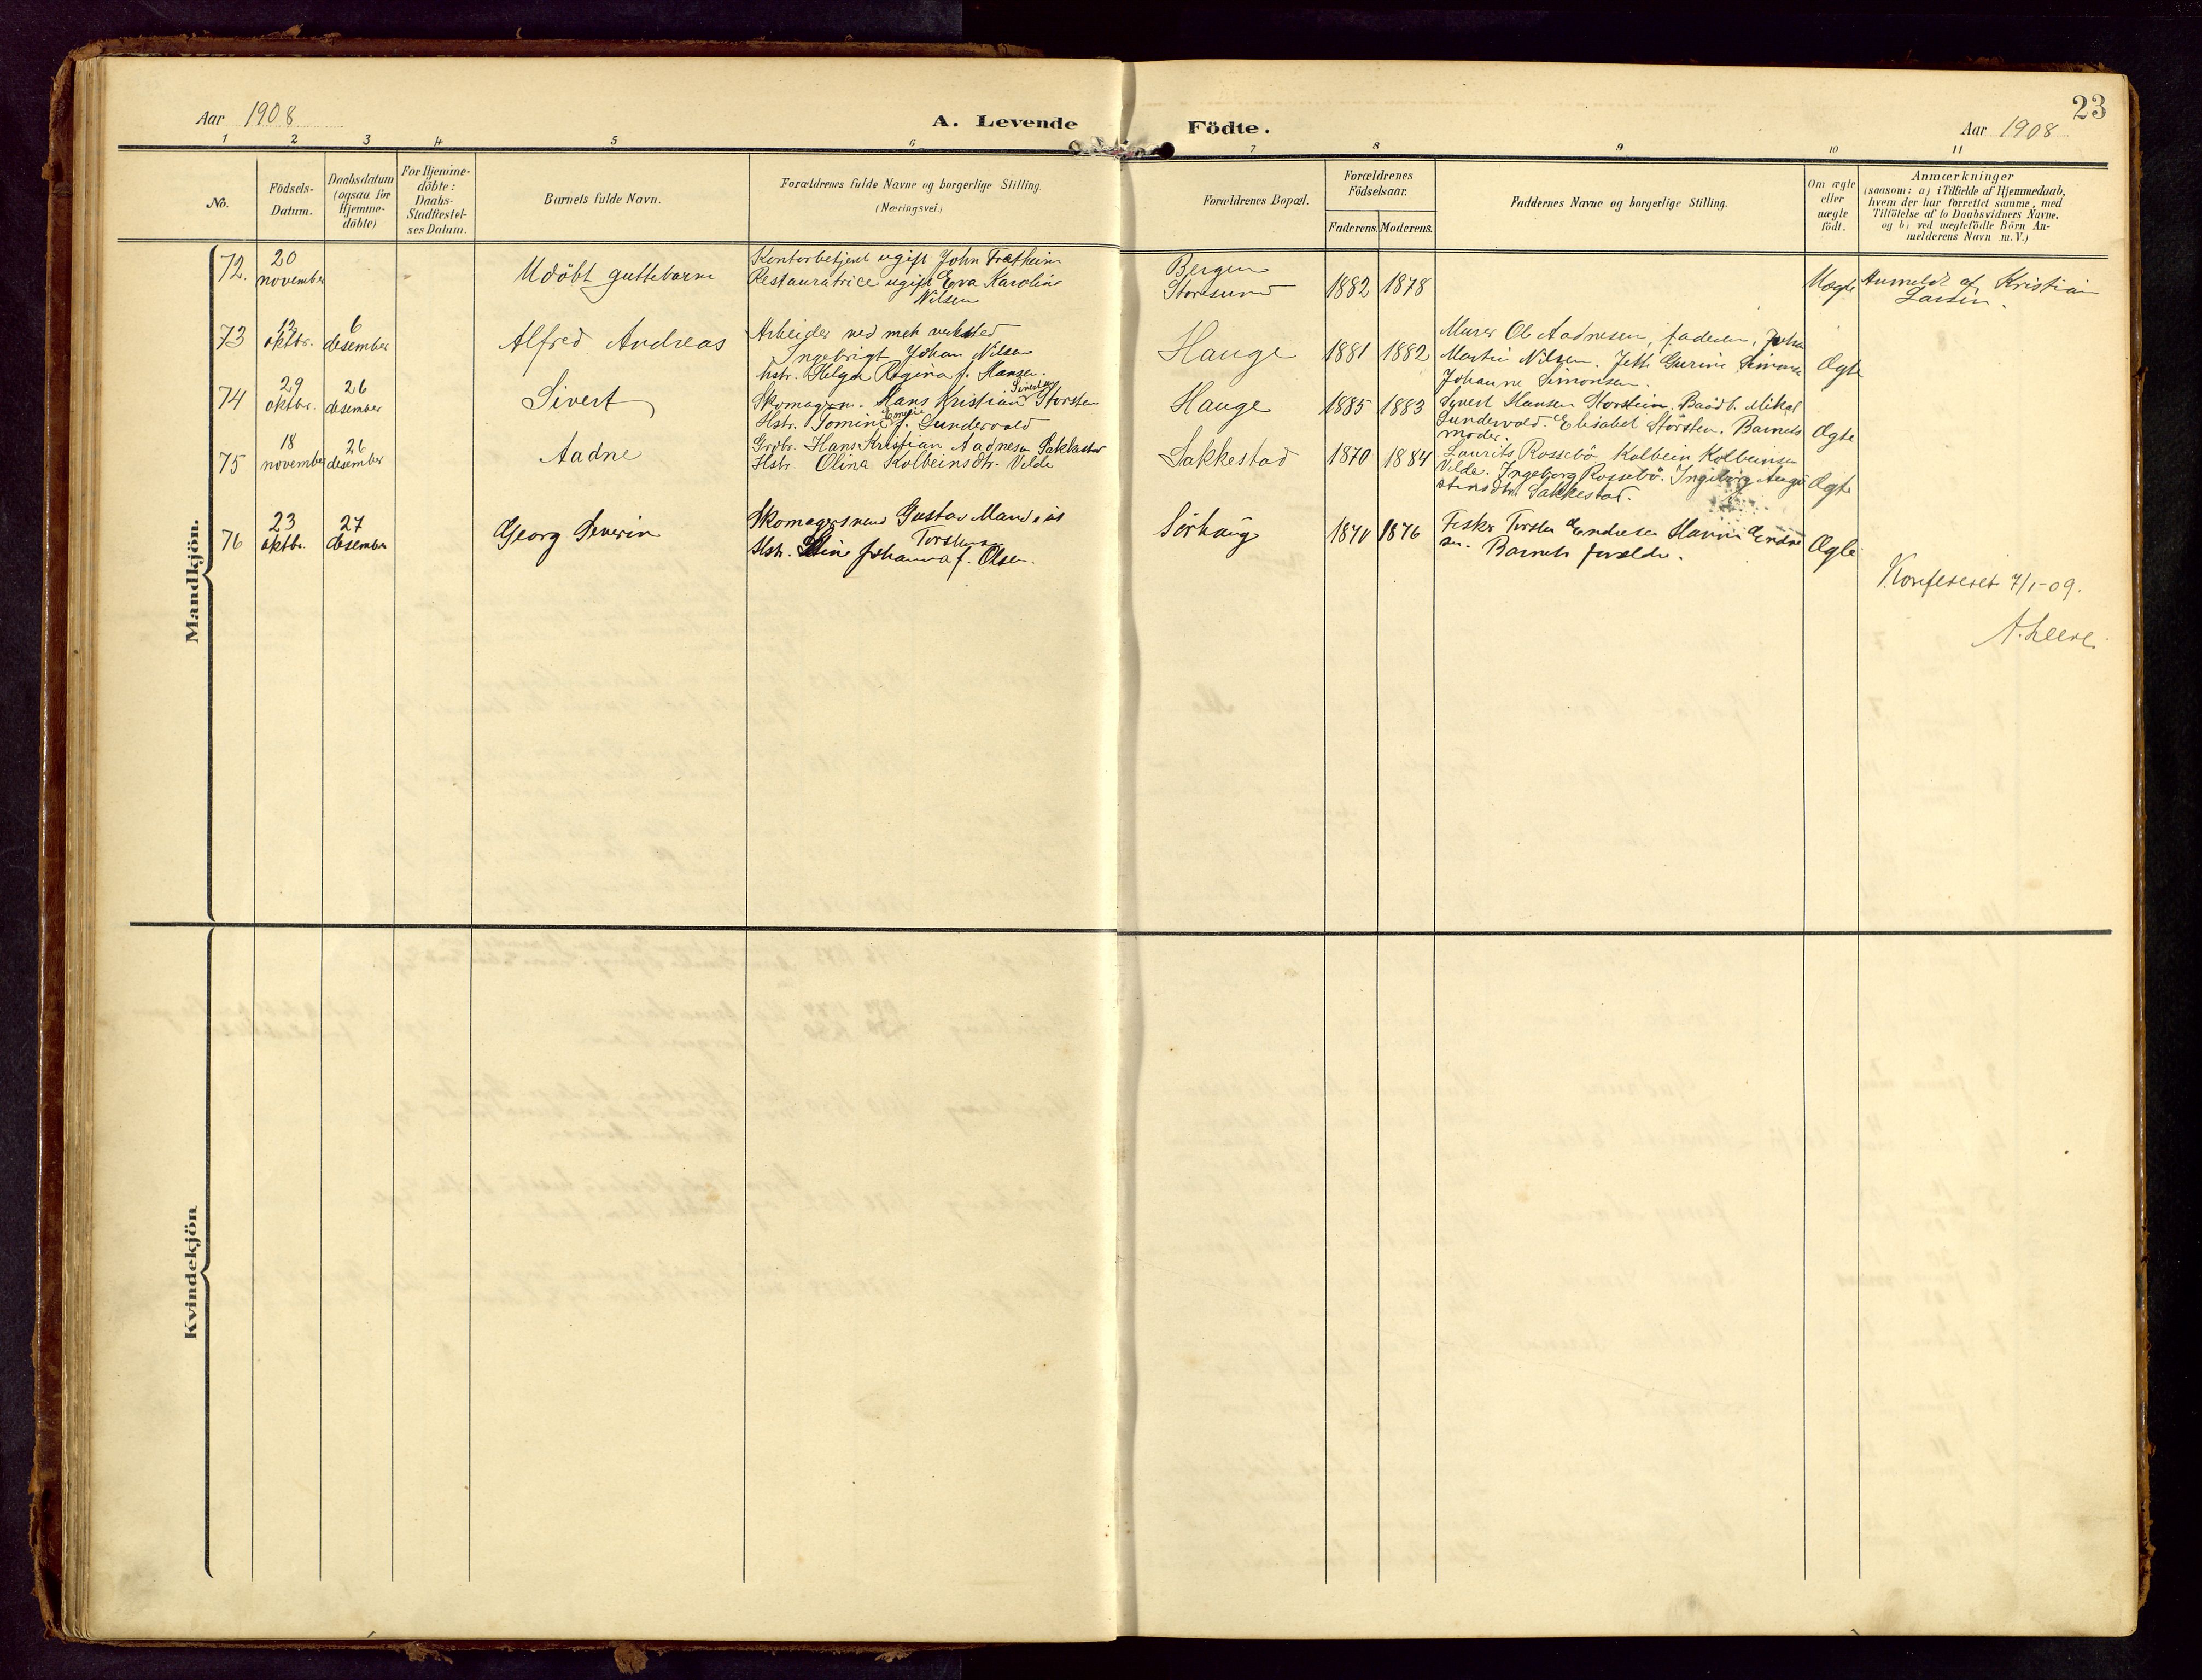 23
Aar 1908
A. Levende Födte.
Aar 1908
1 2 3 4 5 6 7 8 9 10 11
No.
Födsels-
Datum.
Daabsdatum
(ogsaa for
Hjemme-
döbte)
For Hjemme-
döbte:
Daabs-
Stadfæstel-
ses Datum.
Barnets fulde Navn.
Forældrenes fulde Navne og borgerlige Stilling.
(Næringsvei.)
Forældrenes Bopæl.
Forældrenes
Födselsaar.
Faderens. Moderens.
Faddernes Navne og borgerlige Stilling.
Om ægte
eller
uægte
födt.
Anmærkninger
(saasom: a) i Tilfælde af Hjemmedaab,
hvem der har forrettet samme, med
Tilföielse af to Daabsvidners Navne,
og b) ved uægtefödte Börn An-
melderens Navn m. V.)
Mandkjön.
72.
20
november
Udöbt guttebarn
Kontorbetjent ugift John Frætheim
Restauratrice ugift Eva Karoline
Nilsen
Bergen
Storesund
1882 1878
Uægte
Anmeldt af Kristian
Larsen.
73
12
oktbr.
6
desember
Alfred Andreas
Arbeider ved mek verksted
Ingebrigt Johan Nilsen
hstr. Helga Regina f. Hansen.
Hauge
1881 1882
Murer Ole Aadnesen, faderen, Johan
Martin Nilsen. Jette Gurine Simonsen
Johanne Simonsen.
Ægte
74
29
oktbr.
26
desember
Sivert
Skomagersv. Hans Kristian Sivertsen Storsten
Hstr. Tomine f. Sundervold
Hauge
1885 1883
Syvert Hansen Storstein. Baadb. Mikal
Sundervold. Elisabet Storsten. Barnets
moder.
Ægte
75
18
november
26
desember
Aadne
Grdbr. Hans Kristian Aadnesen Sakkestad
Hstr. Olina Kolbeinsdtr. Velde
Sakkestad
1870 1884
Laurits Rossebö Kolbein Kolbeinsen
Velde. Ingeborg Rossebö. Ingeborg Aug
stinsdtr. Sakkestad.
Ægte
76
23
oktbr.
27
desember
Georg Severin
Skomagersvend Gustav Mandius
Torstensen
Hstr. Stine Johanna f. Olsen.
Sörhaug
1870 1876
Fisker Torsten Endresen Hanna Endre
sen. Barnets forældre.
Ægte
Konfereret 7/1-09.
Kvindekjön